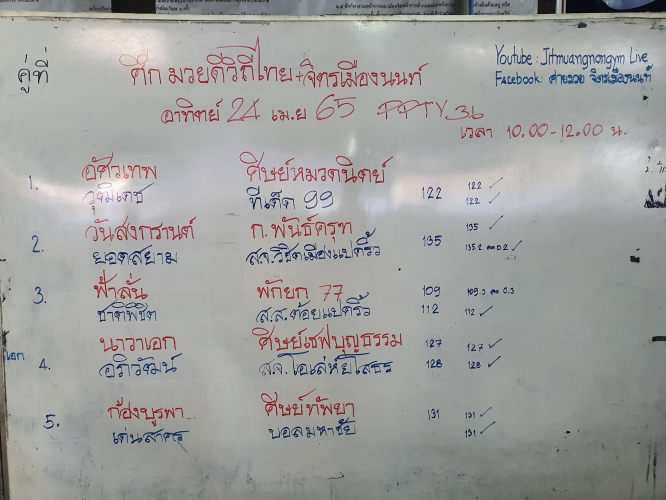 คู่ที่ ศึก มวยดีวิถีไทย+จิตรเมืองนนท์
Youtube : Jitmuangnongym Live
Facebook: ค่ายมวย จิตรเมืองนนท์
อาทิตย์ 24 เม.ย 65 PPTV36
เวลา 10.00-12.00 น.
1. อัศวเทพ ศิษย์หมวดนิตย์ 122 ✓
วุฒิเดช ทีเด็ด 99 122 122 ✓
2. วันสงกรานต์ ก.พันธ์ครุฑ 135 ✓
ยอดสยาม ส.จ.วิชิตเมืองแปดริ้ว 135 135.2 ลด 0.2 ✓
3. ฟ้าลั่น พักยก 77 109 109.3 ลด 0.3
ชาติพิชิต ส.ส.ต้อยแปดริ้ว 112 112 ✓
4. นาวาเอก ศิษย์เชฟบุญธรรม 127 127 ✓
เอก
อภิวัฒน์ ส.จ.โอเล่ห์ยโสธร 128 128 ✓
5. ก้องบูรพา ศิษย์ทัพยา 131 131 ✓
เด่นสาคร บอลมหาชัย 131 ✓